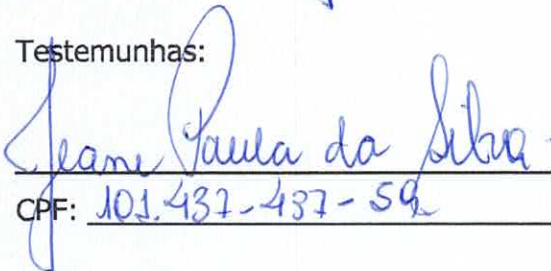 Testemunhas:
Jeane Paula da Silva
CPF: 101.437-437-59